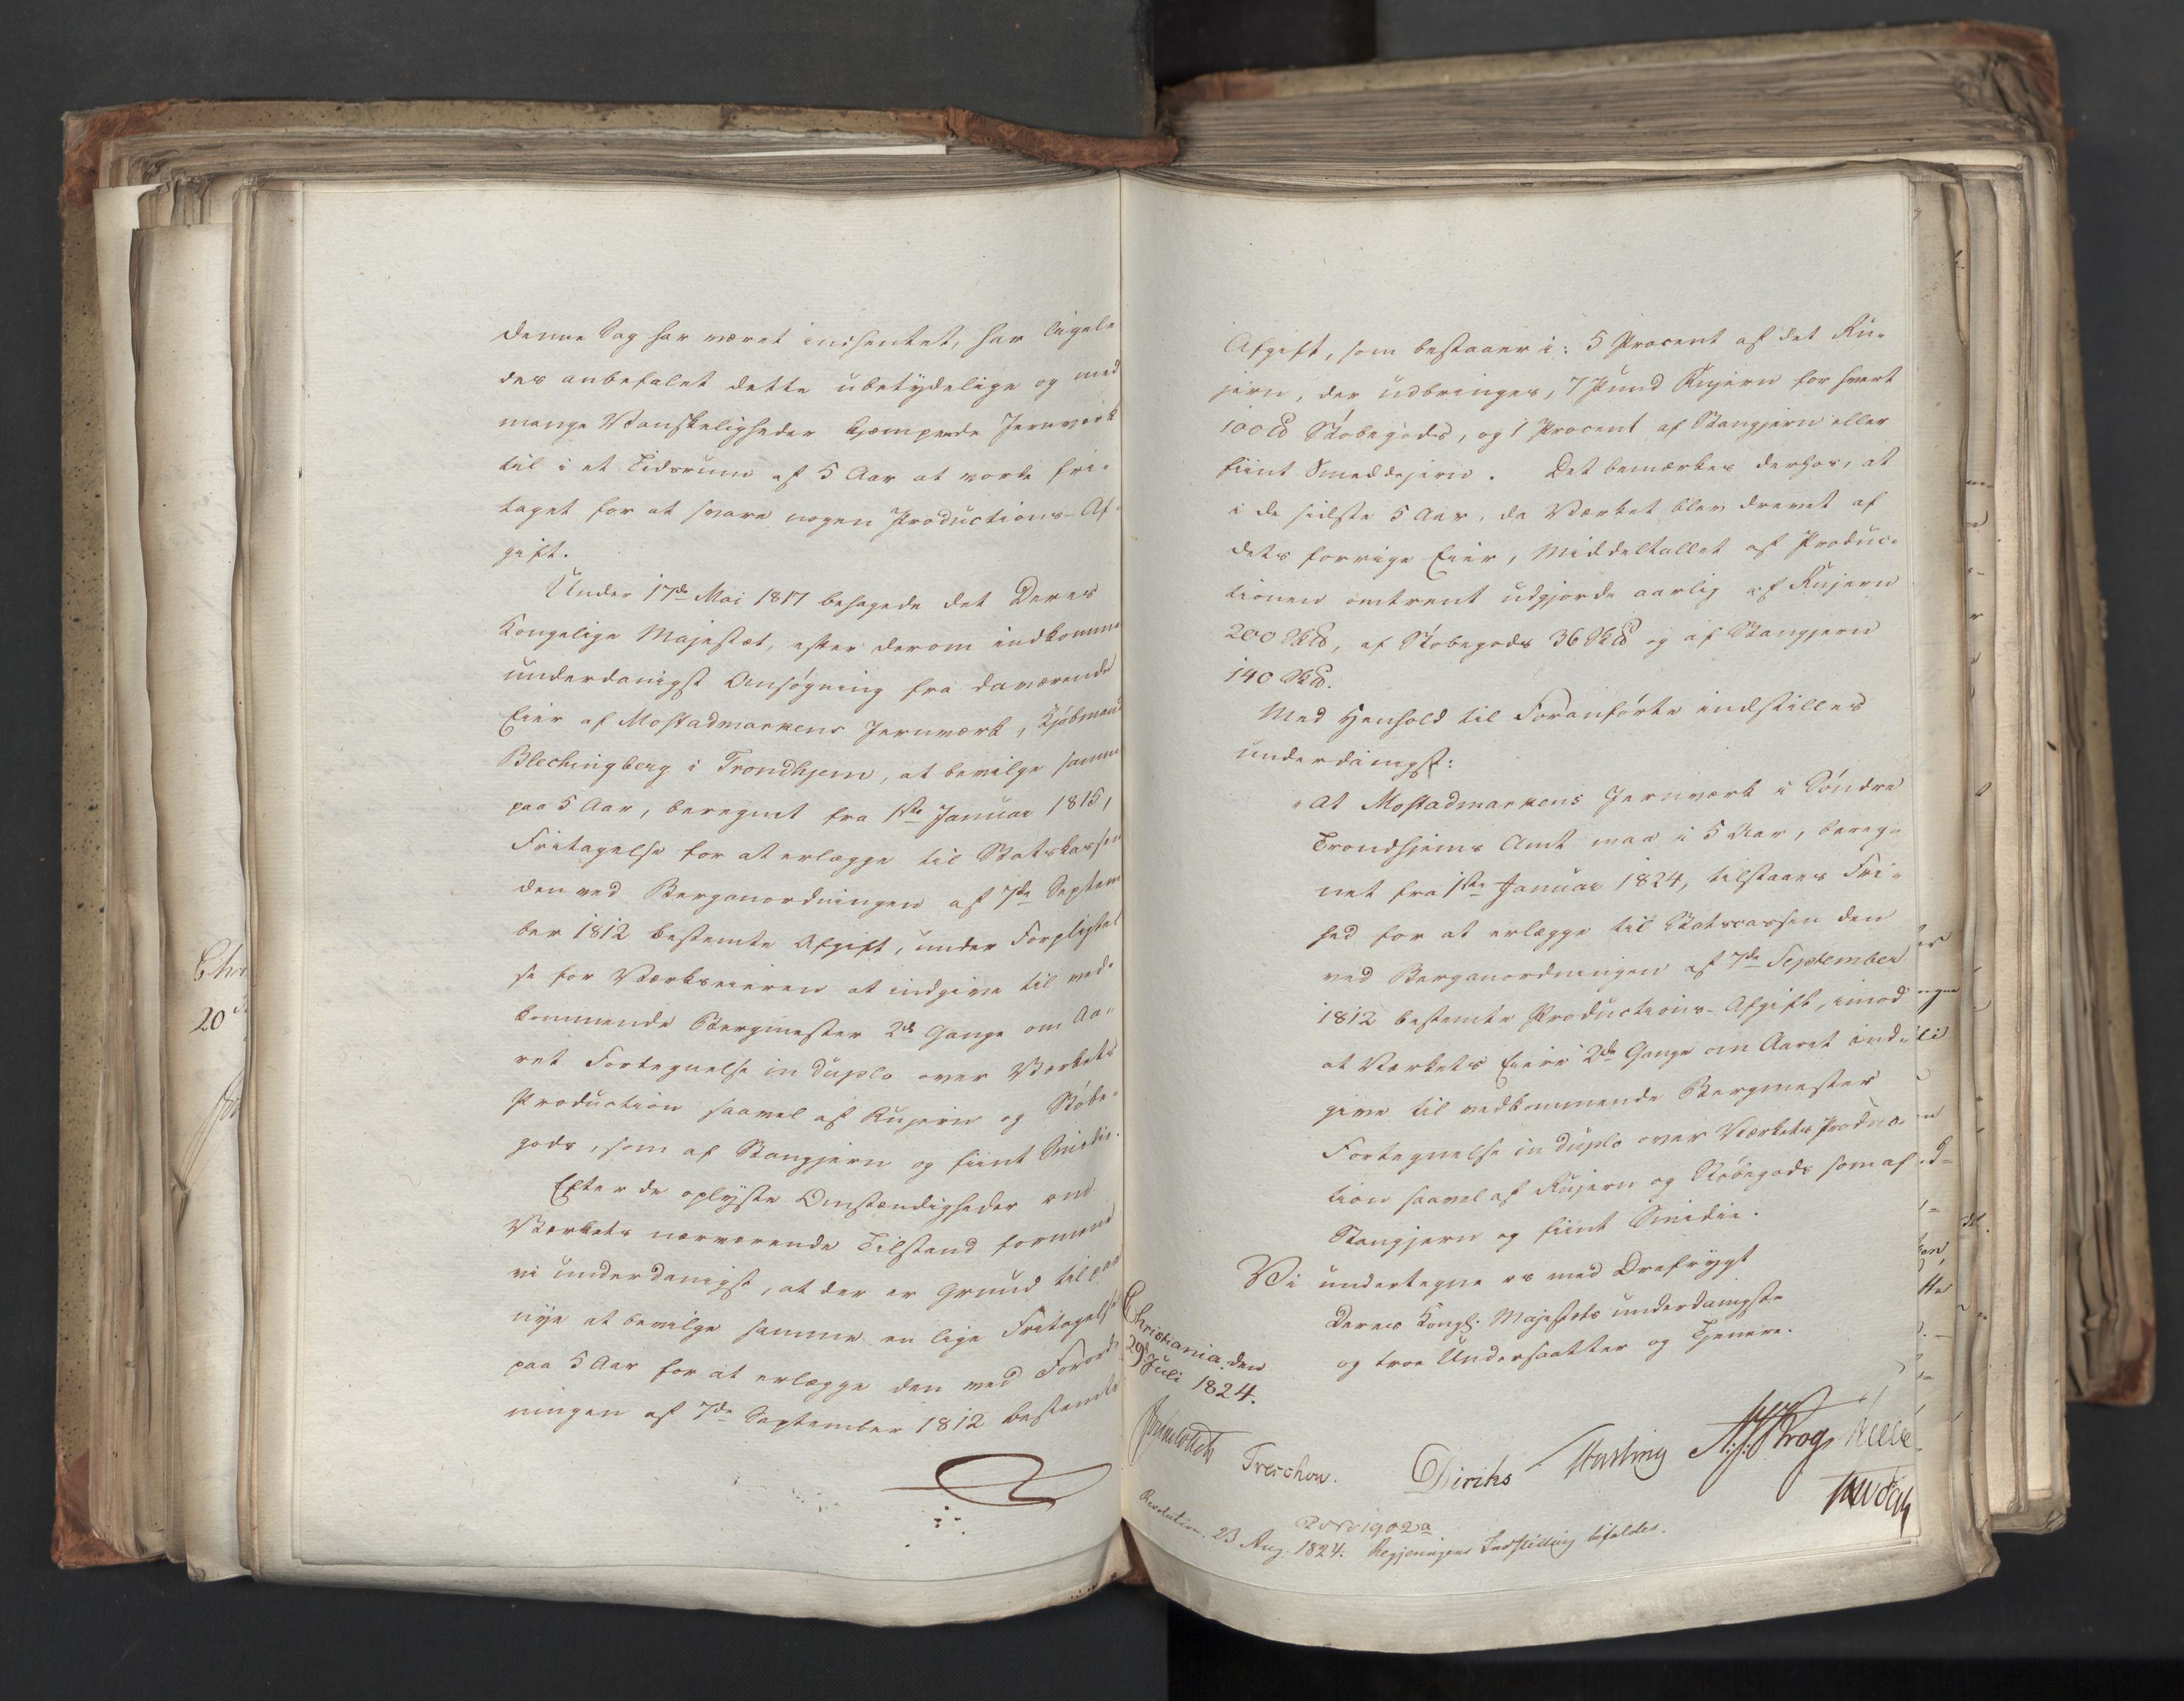 denne Sag har været indhentet, har ligele
des anbefalet dette ubetydelige og med
mange Vanskeligheder kjæmpende Jernværk
til i et Tidsrum af 5 Aar at vorde fri-
taget for at svare nogen Productions-Af-
gift.
Under 17de Mai 1817 behagede det Deres
Kongelige Majestæt, efter derom indkommen
underdanigst Ansøgning fra daværende
Eier af Mostadmarkens Jernværk, Kjøbmand
Blechingberg i Trondhjem, at bevilge samme
paa 5 Aar, beregnet fra 1ste Januar 1815,
Fritagelse for at erlægge til Statskassen
den ved Berganordningen af 7de Septem
ber 1812 bestemte Afgift, under Forpligtel
se for Værkseieren at indgive til ved-
kommende Bergmester 2de Gange om Aa-
ret Fortegnelse in duplo over Værkets
Production saavel af Rujern og Støbe-
gods, som af Stangjern og fiint Smedie.
Efter de oplyste Omstændigheder om
Værkets nærværende Tilstand formene
vi underdanigst, at der er Grund til paa
nye at bevilge samme en lige Fritagelse
paa 5 Aar for at erlægge den ved Forord
ningen af 7de September 1812 bestemte
Afgift, som bestaaer i: 5 Procent af det Ru-
jern, der udbringes, 7 Pund Rujern for hvert
100 ℔ Støbegods, og 1 Procent af Stangjern eller
fiint Smeddejern. Det bemærkes derhos, at
i de sidste 5 Aar, da Værket blev drevet af
dets forrige Eier, Middeltallet af Produc-
tionen omtrent udgjorde aarlig af Rujern
200 Sk℔, af Støbegods 36 Sk℔ og af Stangjern
140 Sk℔.
Med Henhold til Foranførte indstilles
underdanigst:
"At Mostadmarkens Jernværk i Søndre
Trondhjems Amt maa i 5 Aar, bereg-
net fra 1ste Januar 1824, tilstaaes Fri-
hed for at erlægge til Statscassen den
ved Berganordningen af 7de September
1812 bestemte Productions-Afgift, imod
at Værkets Eiere 2de Gange om Aaret ind-
give til vedkommende Bergmester
Fortegnelse in duplo over Værkets Produc-
tion saavel af Rujern og Støbegods som af
Stangjern og fiint Smedie.
Vi undertegne os med Ærefrygt
Deres Kongl. Majestæts underdanigste
og troe Undersaatter og Tjenere.
Christiania den
29de Juli 1824.
Treschow.
Diriks
Krog
Resolution. 23 Aug. 1824. Regjeringens Indstilling bifaldes.